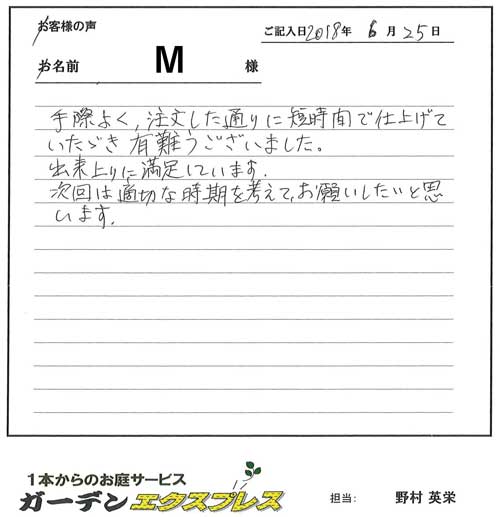 お客様の声
ご記入日2018年 6月25日
お名前 M 様
手際よく,注文した通りに短時間で仕上げて
いただき有難うございました。
出来上りに満足しています.
次回は適切な時期を考えて,お願いしたいと思
います.
1本からのお庭サービス
ガーデンエクスプレス
担当: 野村 英栄